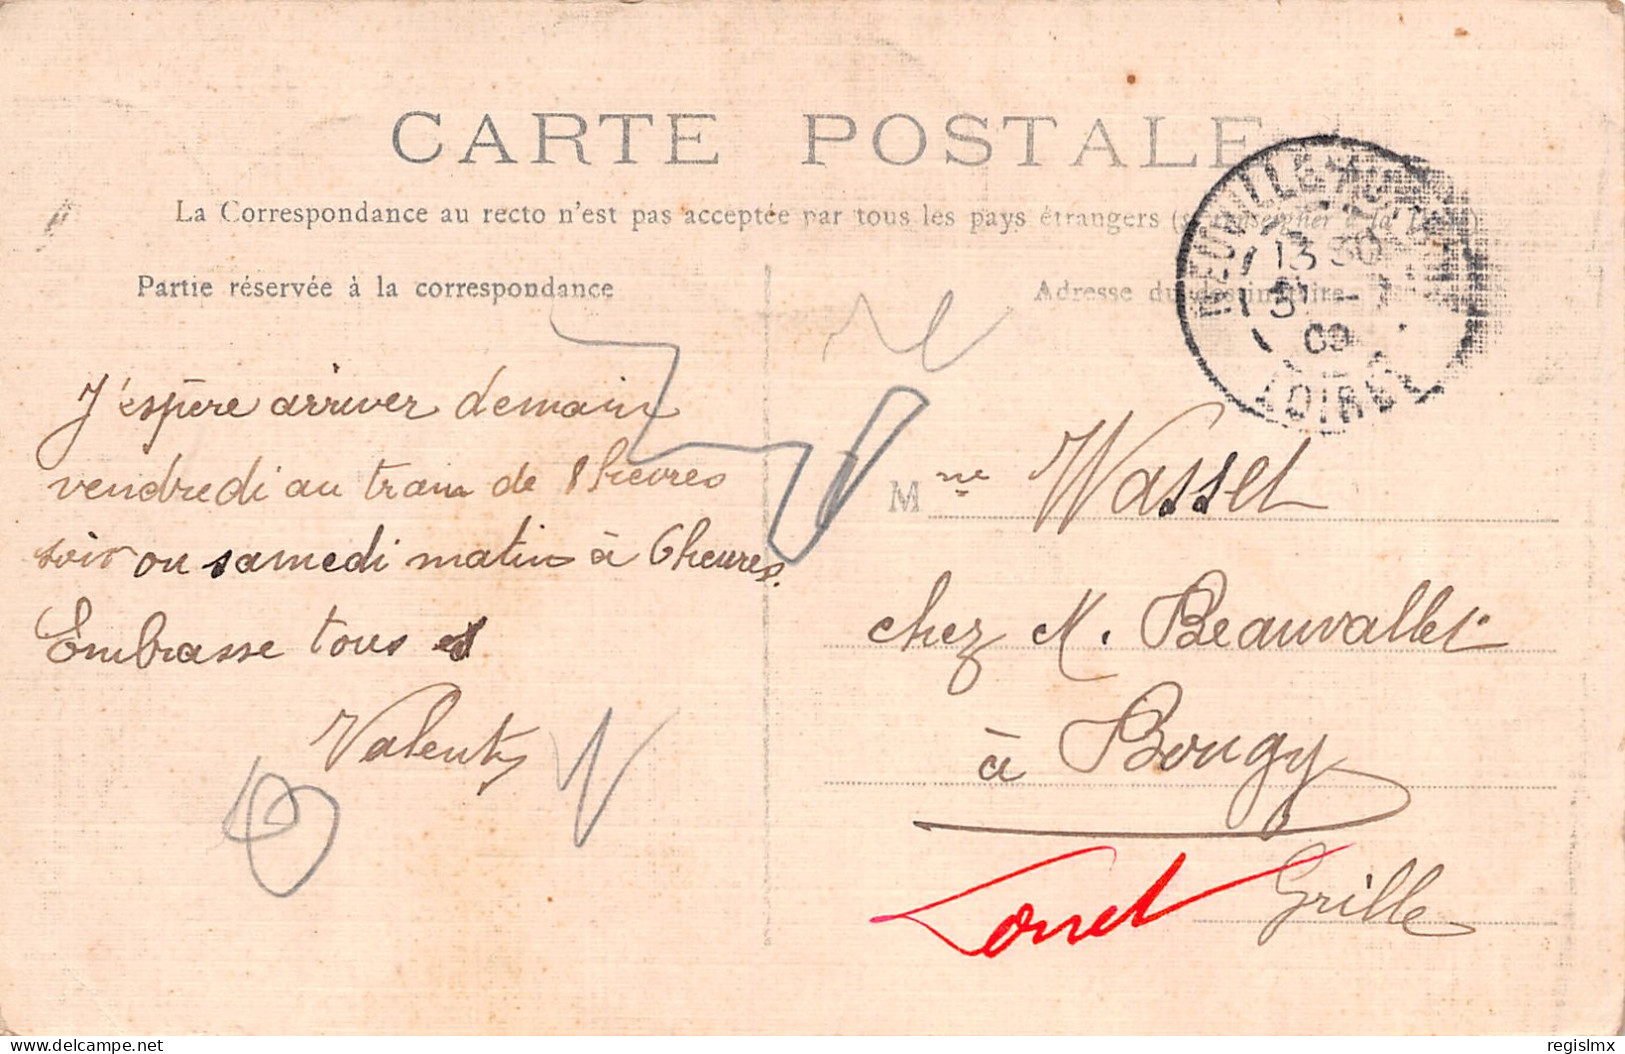 CARTE POSTALE
La Correspondance au recto n'est pas acceptée par tous les pays étrangers (se renseigner à la Poste)
Partie réservée à la correspondance
Adresse du destinataire
NEUVILLE-AUX-
13 30
31 - 7
09
LOIRET
J'espère arriver demain
vendredi au train de 8 heures
soir ou samedi matin à 6 heures.
Embrasse tous
Valentin
Mme Wasset
chez M. Beauvallet
à Bougy
Grille
Loiret
delcampe.net
regislmx